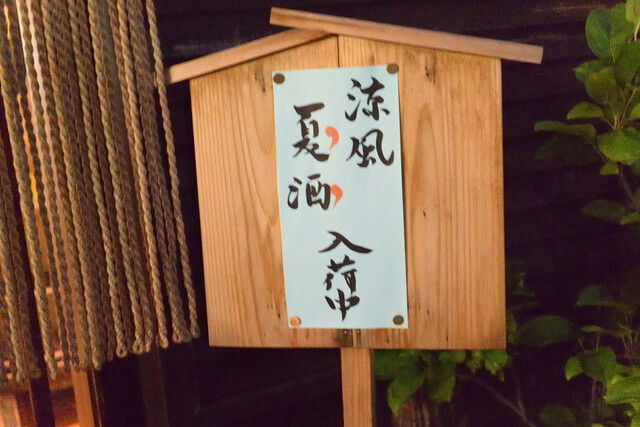 涼風
夏酒
入荷中